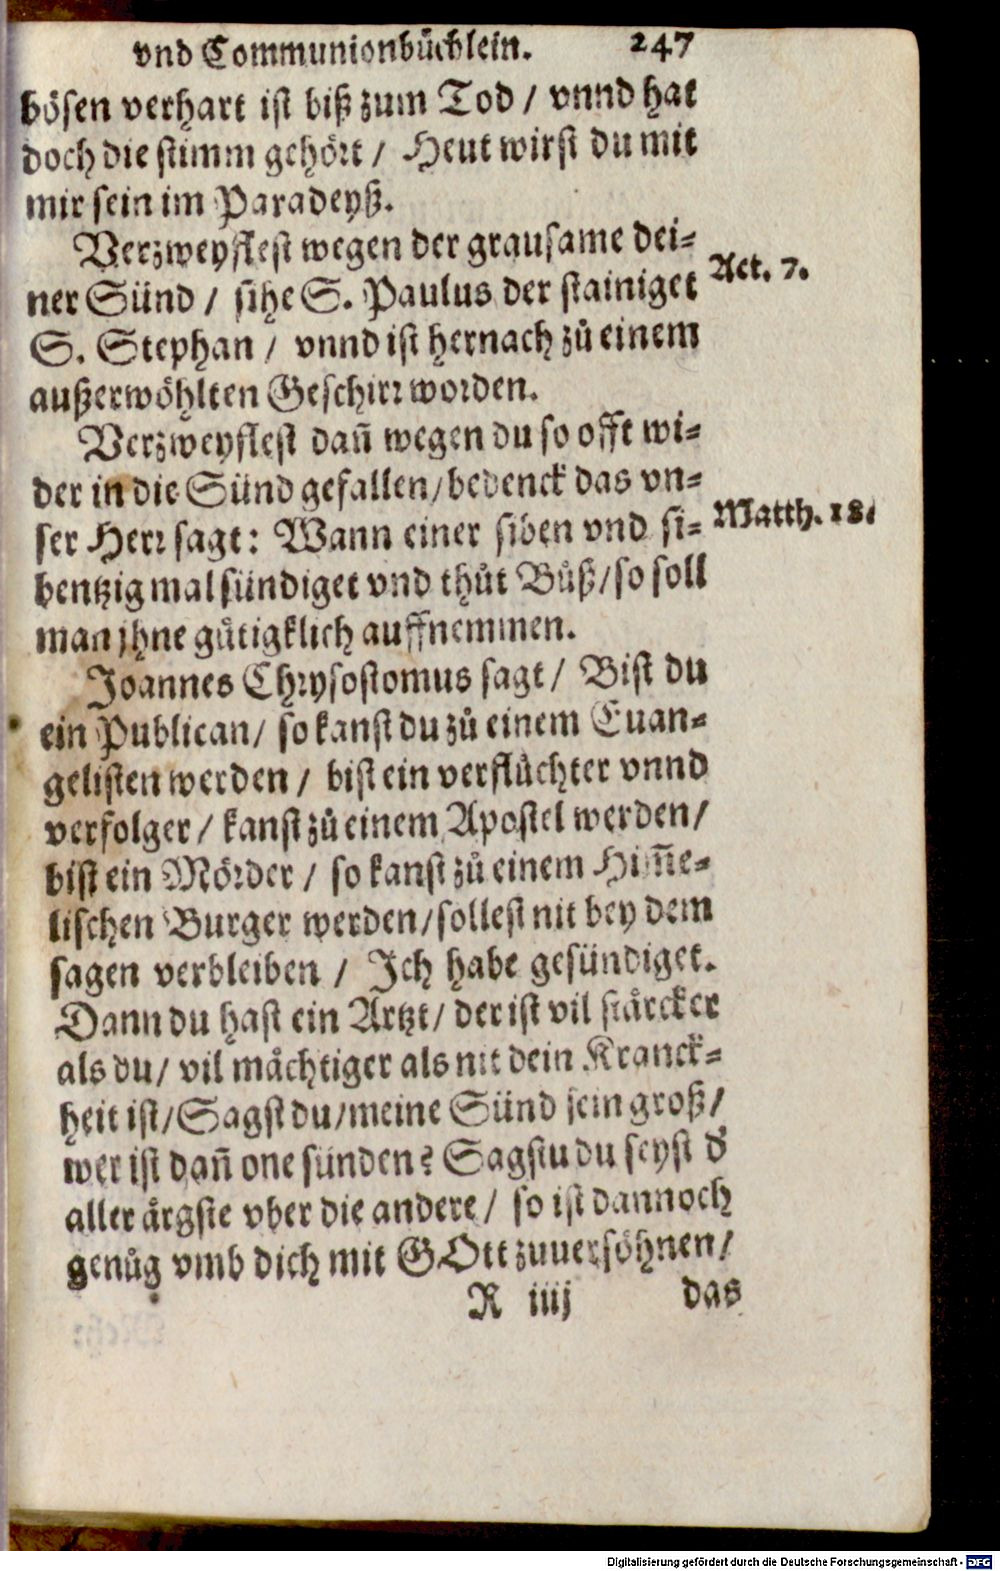 vnd Communionbüchlein. 247
bösen verhart ist biß zum Tod / vnnd hat
doch die stimm gehört / Heut wirst du mit
mir sein im Paradeyß.
Verzweyflest wegen der grausame dei-
ner Sünd / sihe S. Paulus der stainiget
Act. 7.
S. Stephan / vnnd ist hernach zů einem
außerwöhlten Geschirr worden.
Verzweyflest dañ wegen du so offt wi-
der in die Sünd gefallen / bedenck das vn-
ser Herr sagt: Wann einer siben vnd si-
Matth. 18.
bentzig mal sündiget vnd thůt Bůß / so soll
man jhne gütigklich auffnemmen.
Joannes Chrysostomus sagt / Bist du
ein Publican / so kanst du zů einem Euan-
gelisten werden / bist ein verflůchter vnnd
verfolger / kanst zů einem Apostel werden /
bist ein Mörder / so kanst zů einem Him̃e-
lischen Burger werden / sollest nit bey dem
sagen verbleiben / Ich habe gesündiget.
Dann du hast ein Artzt / der ist vil stärcker
als du / vil mächtiger als nit dein Kranck-
heit ist / Sagst du / meine Sünd sein groß /
wer ist dañ one sünden? Sagstu du seyst d'
aller ärgste vber die andere / so ist dannoch
genůg vmb dich mit GOtt zuuersöhnen /
R iiij das
Digitalisierung gefördert durch die Deutsche Forschungsgemeinschaft - DFG